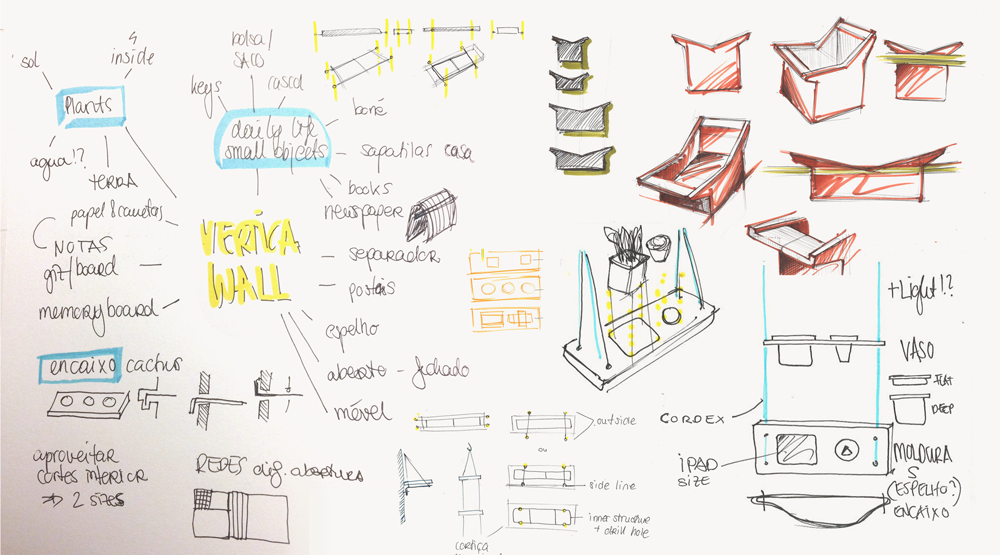 sol
inside
Plants
água!?
TERRA
bolsa/
SACO
keys
casaco
daily life
small objects
boné
sapatilas casa
books
newspaper
separador
postais
espelho
aberto - fechado
móvel
papel & canetas
NOTAS
giz/board
memory board
VERTICAL
WALL
encaixo cactus
aproveitar
cortes interior
⇒ 2 SIZES
REDES dif. aberturas
outside
ou
side line
inner structure
+ drill hole
cortiça
+Light!?
VASO
FLAT
DEEP
CORDEX
iPAD
SIZE
MOLDURA
S
(ESPELHO?)
ENCAIXO